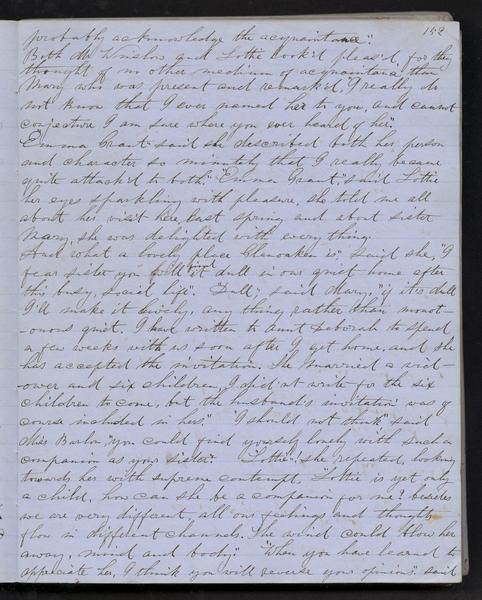 152
probably acknowledge the acquaintance".
Both Mr Winslow and Lottie look'd pleas'd for they
thought of no other medium of acquaintance than
Mary who was present and remark'd, "I really do
not know that I ever named her to you, and cannot
conjecture I am sure where you ever heard of her".
"Emma Grant" said she described both her person
and character so minutely that I really became
quite attach'd to both". "Emma Grant", said Lottie
her eyes sparkling with pleasure, she told me all
about her visit here last spring and about sister
Mary, she was delighted with every thing
And what a lovely place Glenoaken is", said she, "I
fear sister you will find it dull in our quiet home after
this busy, social life". "Dull," said Mary, "if it is dull
I'll make it lively, any thing rather than monot-
-onous quiet, I have written to Aunt Deborah to spend
a few weeks with us soon after I get home, and she
has accepted the invitation. She married a wid-
-ower and six children, I did'nt write for the six
children to come, but the husband's invitation was of
course included in hers." "I should not think" said
Miss Barton, "you could find yourself lonely with such a
companion as your sister". "Lottie"! she repeated, looking
towards her with supreme contempt, "Lottie is yet only
a child, how can she be a companion for me? besides
we are very different all our feelings and thoughts
flow in different channels. The wind could blow her
away, mind and body". "When you have learned to
appreciate her, I think you will reverse your opinion". said